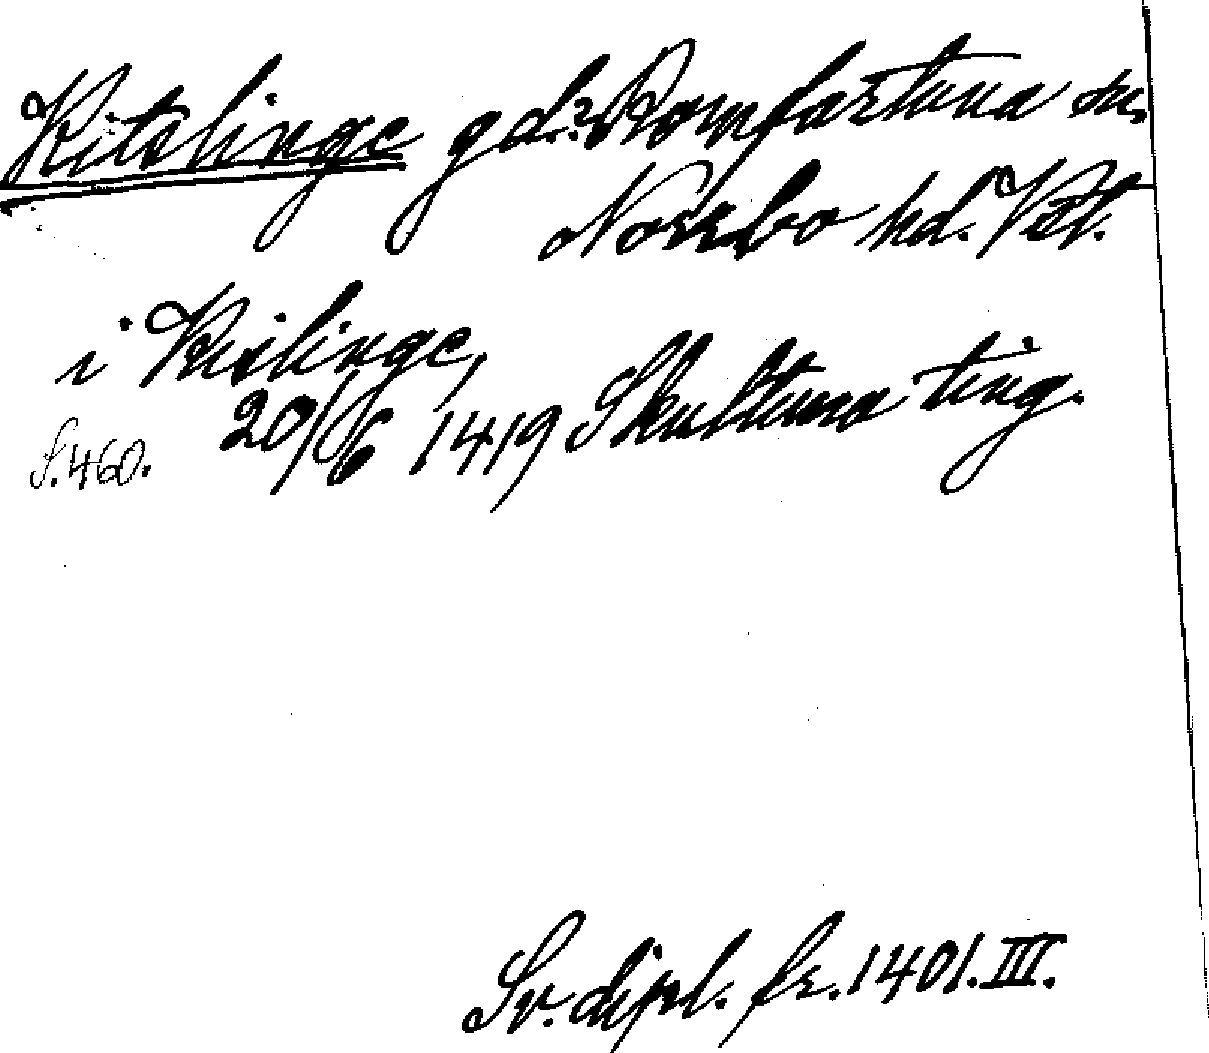 Kitslinge gd.? Romfartuna sn.
Norrbo hd. Vstl.
i Kislinge,
20/6 1419 Skultuna ting.
S. 460.
Sv. dipl. fr. 1401. III.